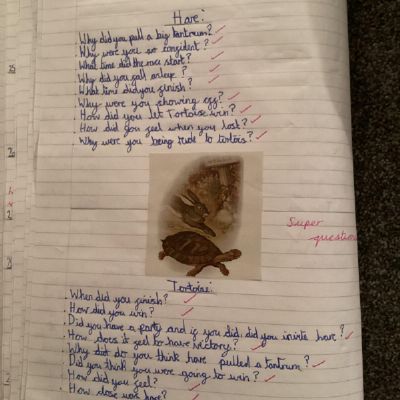 Hare:
. Why did you pull a big tantrum?
. Why were you so confident?
. What time did the race start?
. Why did you fall asleep?
. What time did you finish?
. Why were you showing off?
. How did you let Tortoise win?
. How did you feel when you lost?
. Why were you being rude to tortois?
Super
question
Tortoise:
. When did you finish?
. How did you win?
. Did you have a party and if you did, did you invite hare?
. How does it feel to have victory?
. Why did do you think hare pulled a tantrum?
. Did you think you were going to win?
. How did you feel?
. How close were hare?